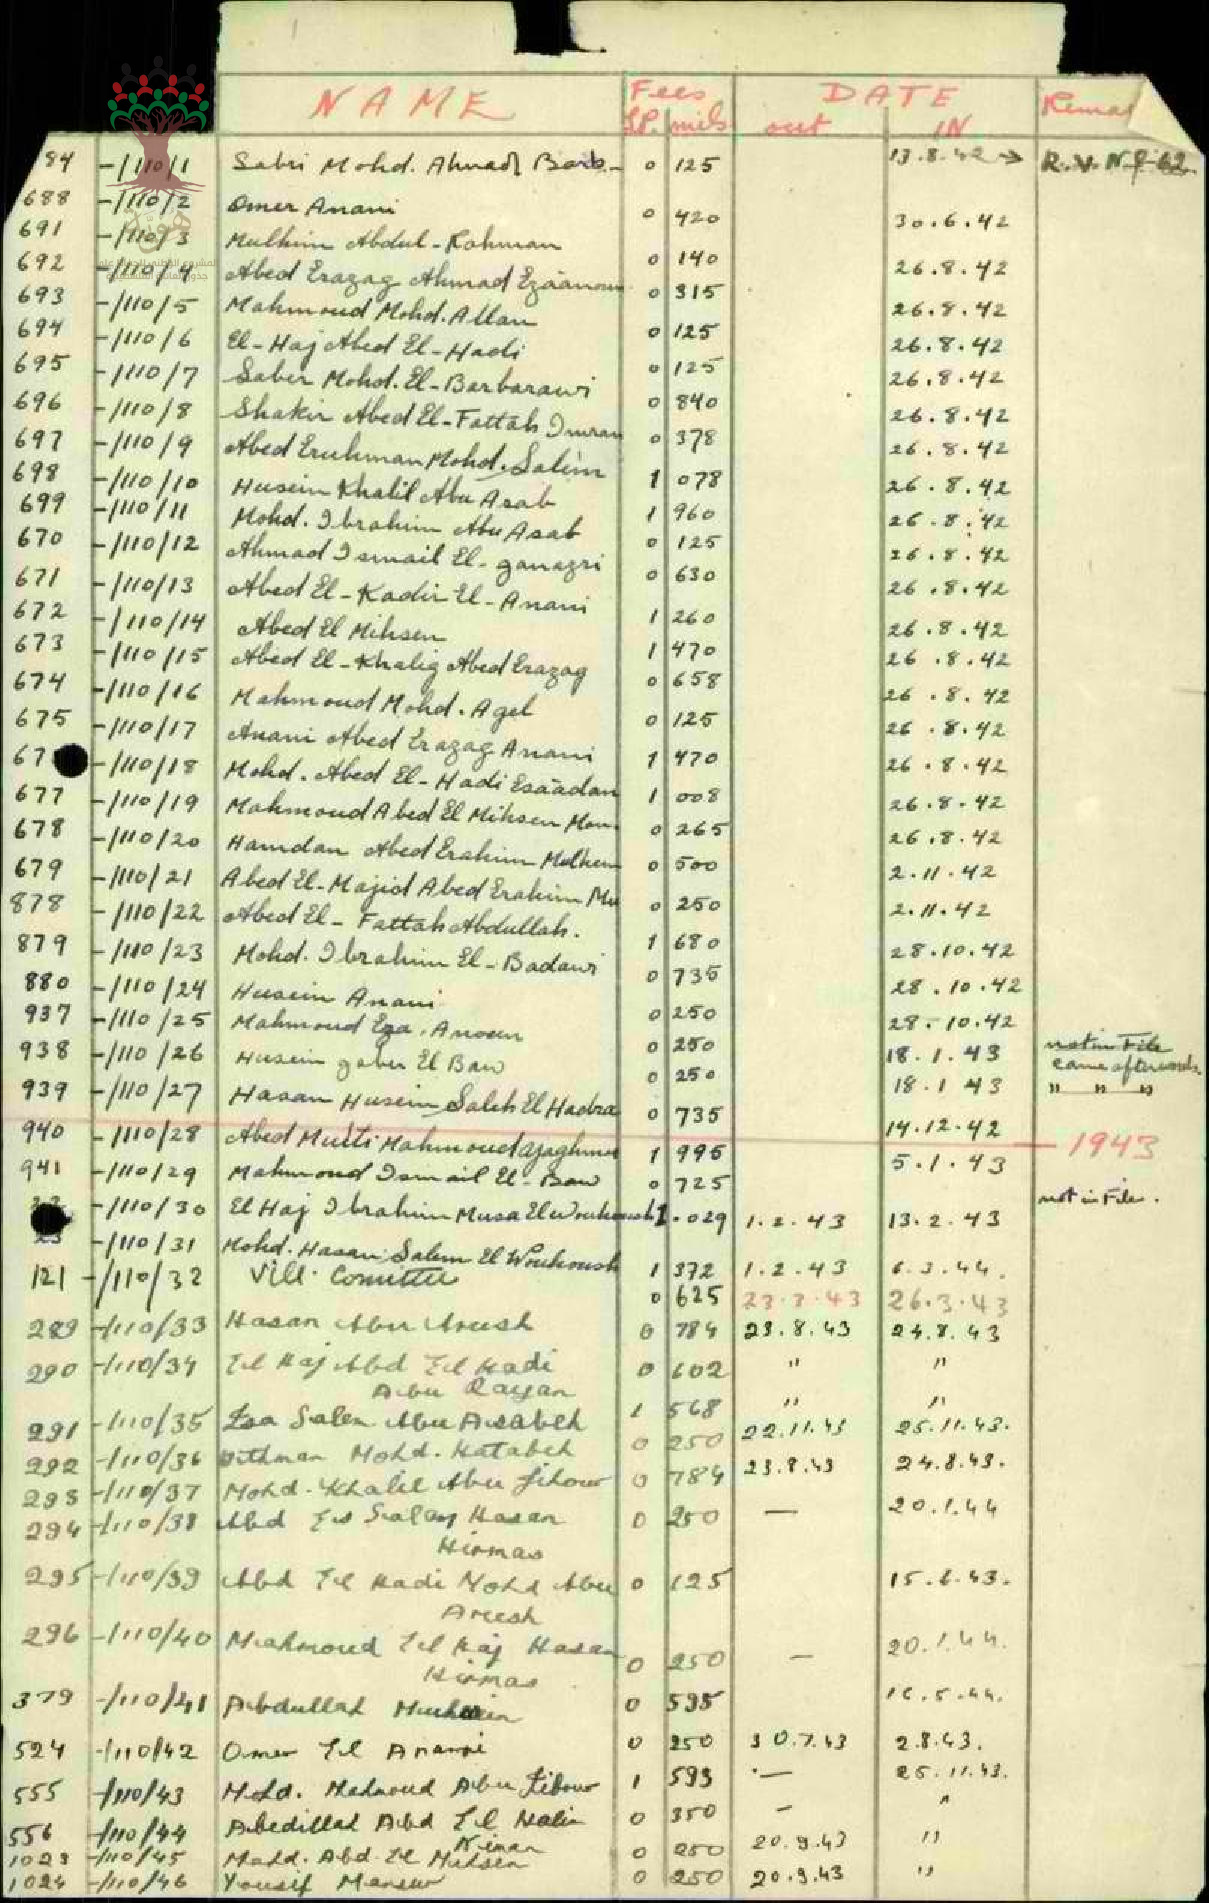 NAME Fees DATE
£P. mils out IN
84 -/110/1 Sabri Mohd. Ahmad Barb.- 0 125 13.8.42 → R.V. No 62
688 -/110/2 Omer Anani 0 420 30.6.42
691 -/110/3 Mulhim Abdul-Rahman 0 140 26.8.42
692 -/110/4 Abed Erazag Ahmad 0 315 26.8.42
693 -/110/5 Mahmoud Mohd. Allan 0 125 26.8.42
694 -/110/6 El-Haj Abed El-Hadi 0 125 26.8.42
695 -/110/7 Saber Mohd. El-Barbarawi 0 840 26.8.42
696 -/110/8 Shakir Abed El-Fattah Imran 0 378 26.8.42
697 -/110/9 Abed Eruhman Mohd. Salim 1 078 26.8.42
698 -/110/10 Husein Khalil Abu Asab 1 960 26.8.42
699 -/110/11 Mohd. Ibrahim Abu Asab 0 125 26.8.42
670 -/110/12 Ahmad Ismail El-ganazri 0 630 26.8.42
671 -/110/13 Abed El-Kadir El-Anani 1 260 26.8.42
672 -/110/14 Abed El Mihsen 1 470 26.8.42
673 -/110/15 Abed El-Khalig Abed Erazag 0 658 26.8.42
674 -/110/16 Mahmoud Mohd. Agel 0 125 26.8.42
675 -/110/17 Anani Abed Erazag Anani 1 470 26.8.42
67 -/110/18 Mohd. Abed El-Hadi Esaadan 1 008 26.8.42
677 -/110/19 Mahmoud Abed El Mihsen 0 265 26.8.42
678 -/110/20 Hamdan Abed Erahim Mulhem 0 500 2.11.42
679 -/110/21 Abed El-Majid Abed Erahim Mu 0 250 2.11.42
878 -/110/22 Abed El-Fattah Abdullah. 1 680 28.10.42
879 -/110/23 Mohd. Ibrahim El-Badawi 0 735 28.10.42
880 -/110/24 Husein Anani 0 250 28.10.42
937 -/110/25 Mahmoud Eza. 0 250 18.1.43 not in File
came afterwards
938 -/110/26 Husein gaber El Baw 0 250 18.1 43 " " "
939 -/110/27 Hasan Husein Saleh El Hadra 0 735 14.12.42
1943
940 -/110/28 Abed Muhti Mahmoud 1 995 5.1.43
941 -/110/29 Mahmoud Ismail El-Baw 0 725 not in File.
-/110/30 El Haj Ibrahim Musa 1.029 1.2.43 13.2.43
23 -/110/31 Mohd. Hasan Salem El Wouhoush 1 372 1.2.43 6.3.44.
121 -/110/32 Vill. Comittee 0 625 23.3.43 26.3.43
289 -/110/33 Hasan Abu Areesh 0 784 23.8.43 24.8.43
290 -/110/34 El Haj Abd El Hadi 0 602 " "
Abu Rayan
291 -/110/35 Isa Salem Abu Asabeh 1 568 " "
292 -/110/36 Othman Mohd. Katabeh 0 250 22.11.43 25.11.43.
293 -/110/37 Mohd. Khalil Abu 0 784 23.8.43 24.8.43.
294 -/110/38 Abd Es Salam Hasan 0 250 — 20.1.44
Hirmas
295 -/110/39 Abd El Hadi Mohd Abu 0 125 15.6.43.
Areesh
296 -/110/40 Mahmoud El Haj Hasan 0 250 — 20.1.44.
Hirmas
379 -/110/41 Abdullah 0 595 16.5.44.
524 -/110/42 Omer El Anani 0 250 30.7.43 2.8.43.
555 -/110/43 Mohd. Mahmoud Abu 1 593 — 25.11.43.
556 -/110/44 Abedillah Abd El Halim 0 350 — "
Niman
1023 -/110/45 Mohd. Abd El Muhsen 0 250 20.9.43 "
1024 -/110/46 Yousif Mansur 0 250 20.9.43 "